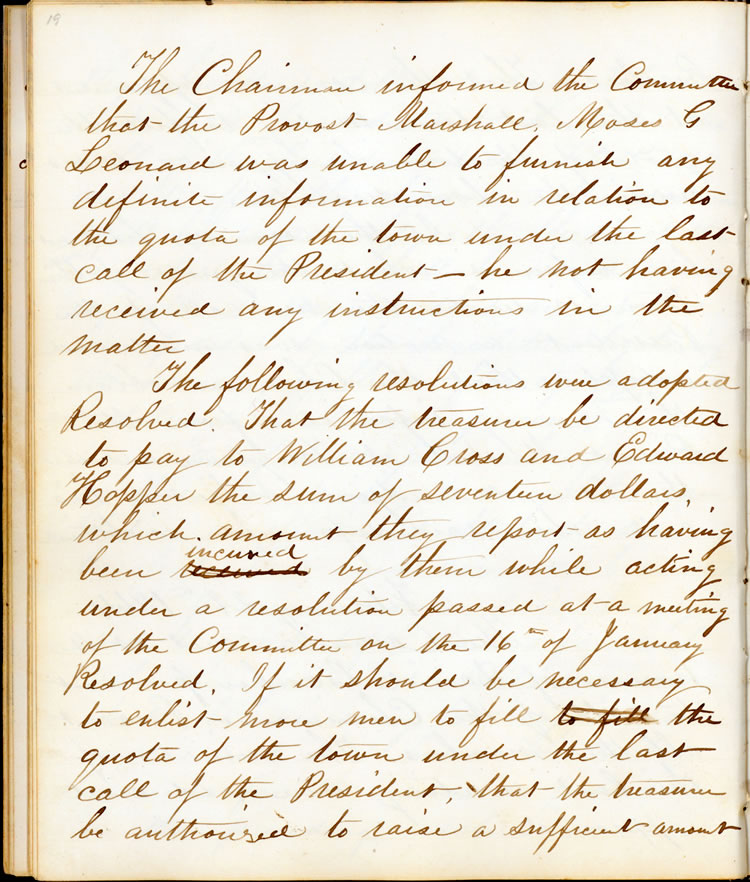 19
The Chairman informed the Committee
that the Provost Marshall, Moses G
Leonard was unable to furnish any
definite information in relation to
the quota of the town under the last
call of the President — he not having
received any instructions in the
matter
The following resolutions were adopted
Resolved. That the treasurer be directed
to pay to William Cross and Edward
Hopper the sum of seventeen dollars,
which amount they report as having
incurred
been received by them while acting
under a resolution passed at a meeting
of the Committee on the 16th of January
Resolved, If it should be necessary
to enlist more men to fill to fill the
quota of the town under the last
call of the President, that the treasurer
be authorized to raise a sufficient amount